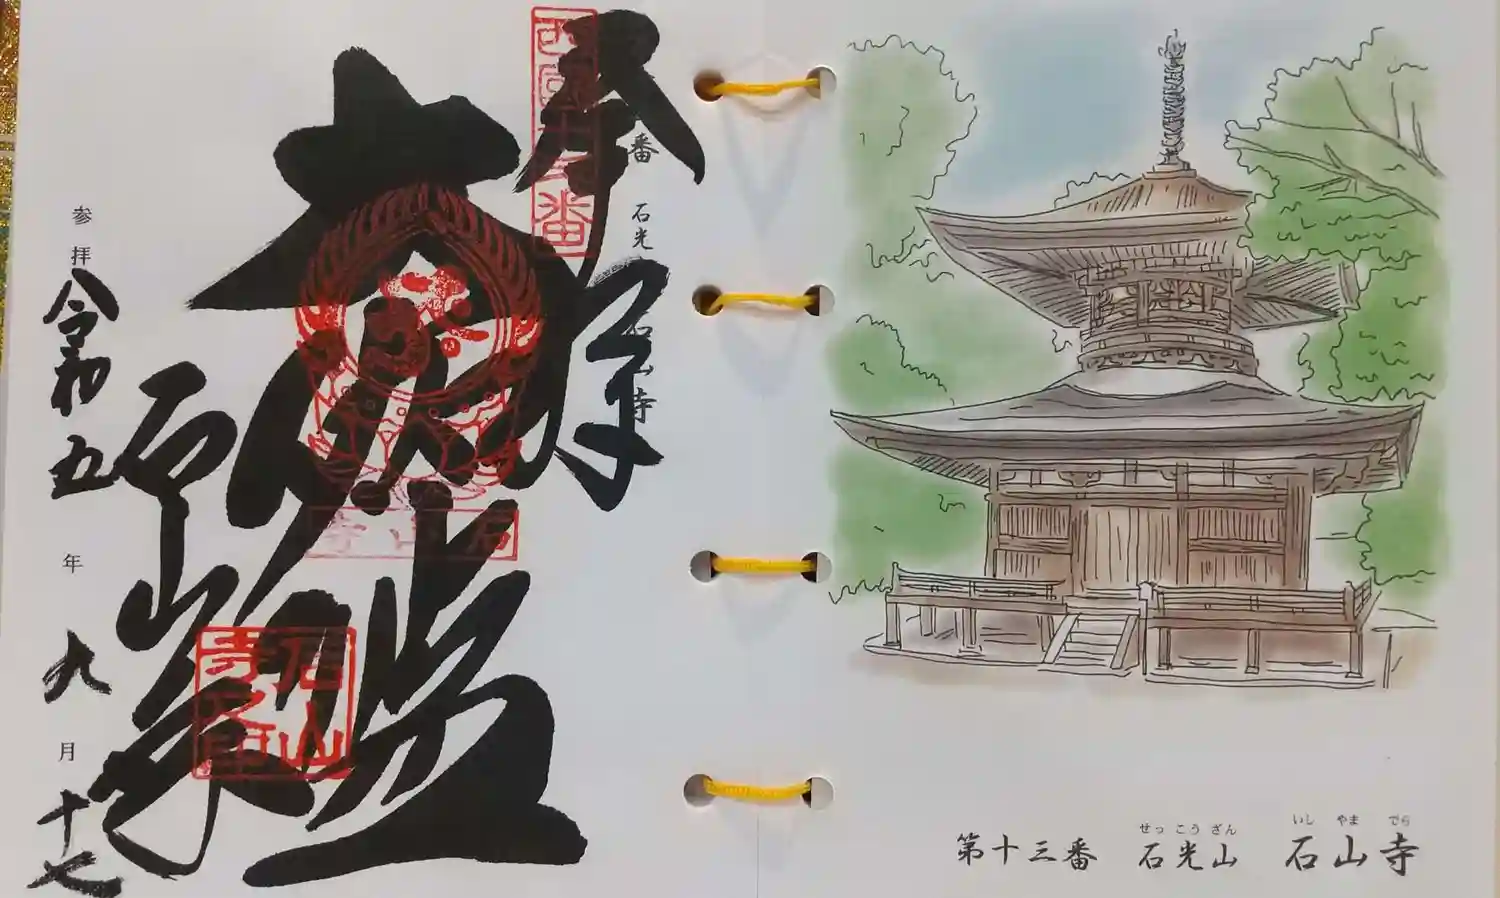 せっ こう ざん いし やま でら
第十三番 石光山 石山寺
番 石光 山寺
奉拝
西国十三番
大伽藍
石山寺
石山寺
石山寺之印
参拝 令和五年九月十七